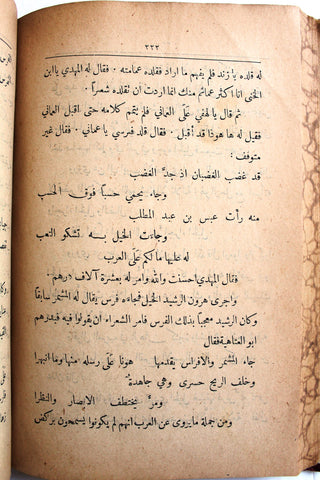 ٢٢٢
له قلده يا زند فلم يفهم ما اراد فقلده عمامته · فقال له المهدي يا ابن
انا اكثر عمائم منك انما اردت ان تقلده شعراً ·
ثم قال يالهفي عَلَى العماني · فلم يتمم كلامه حتى اقبل العماني
فقيل له ها هوذا قد أقبل · فقال قلد فرسي يا عماني · فقال غير
متوقف
قد غضب الغضبان اذ جدَّ الغضب
وجاء يحمي حسباً فوق الحسب
منه رأت عبس بن عبد المطلب
وجاءت الخيل بــه تشكو التعب
له عليها ما لكم عَلَى العرب
فقال المهدي احسنت والله وامر له بعشرة آلاف درهم ·
واجرى هرون الرشيد الخيل فجاءه فرس يقال له المشمر سابقاً
وكان الرشيد معجباً بذلك الفرس فامر الشعراء ان يقولوا فيه فبدرهم
ابو العتاهية فقال
جاء المشمر والافراس يقدمها هوناً عَلَى رسله منها وما انبهرا
وخلف الريح حسرى وهي جاهدة
ومرّ يختطف الابصار والنظرا
ومن جملة ما يروى عن العرب انهم لم يكونوا يسمحون بركض